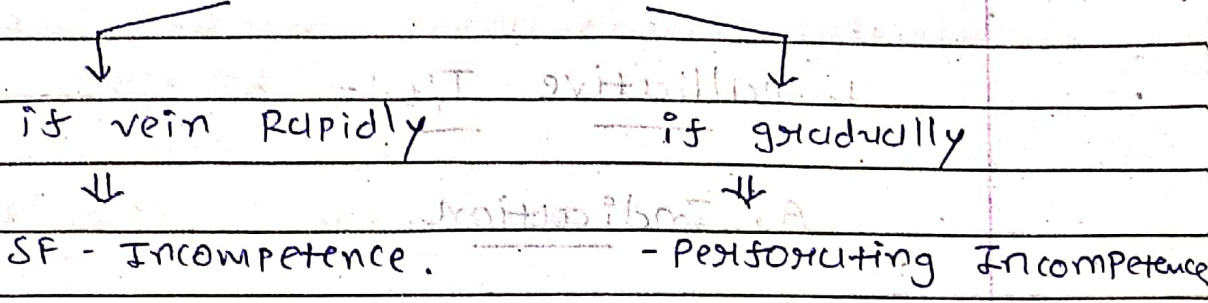 if vein Rapidly if gradually
SF - Incompetence. - Perforating Incompetence